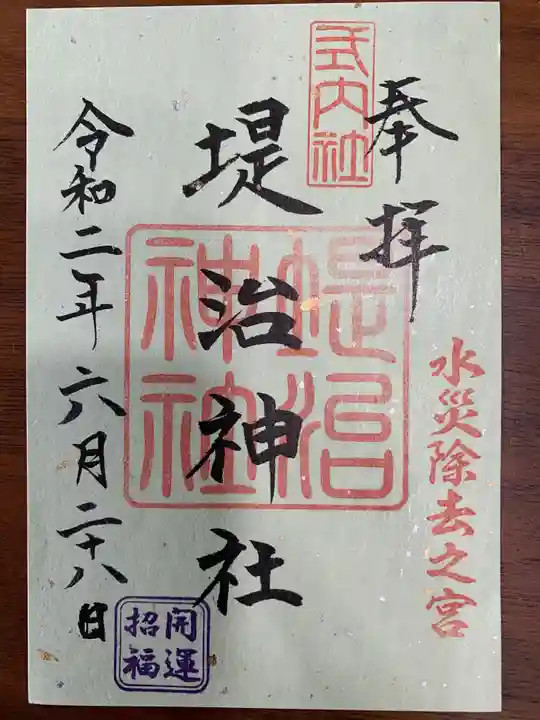 奉拝
式内社
水災除去之宮
堤治神社
堤治神社
令和二年六月二十八日
開運
招福